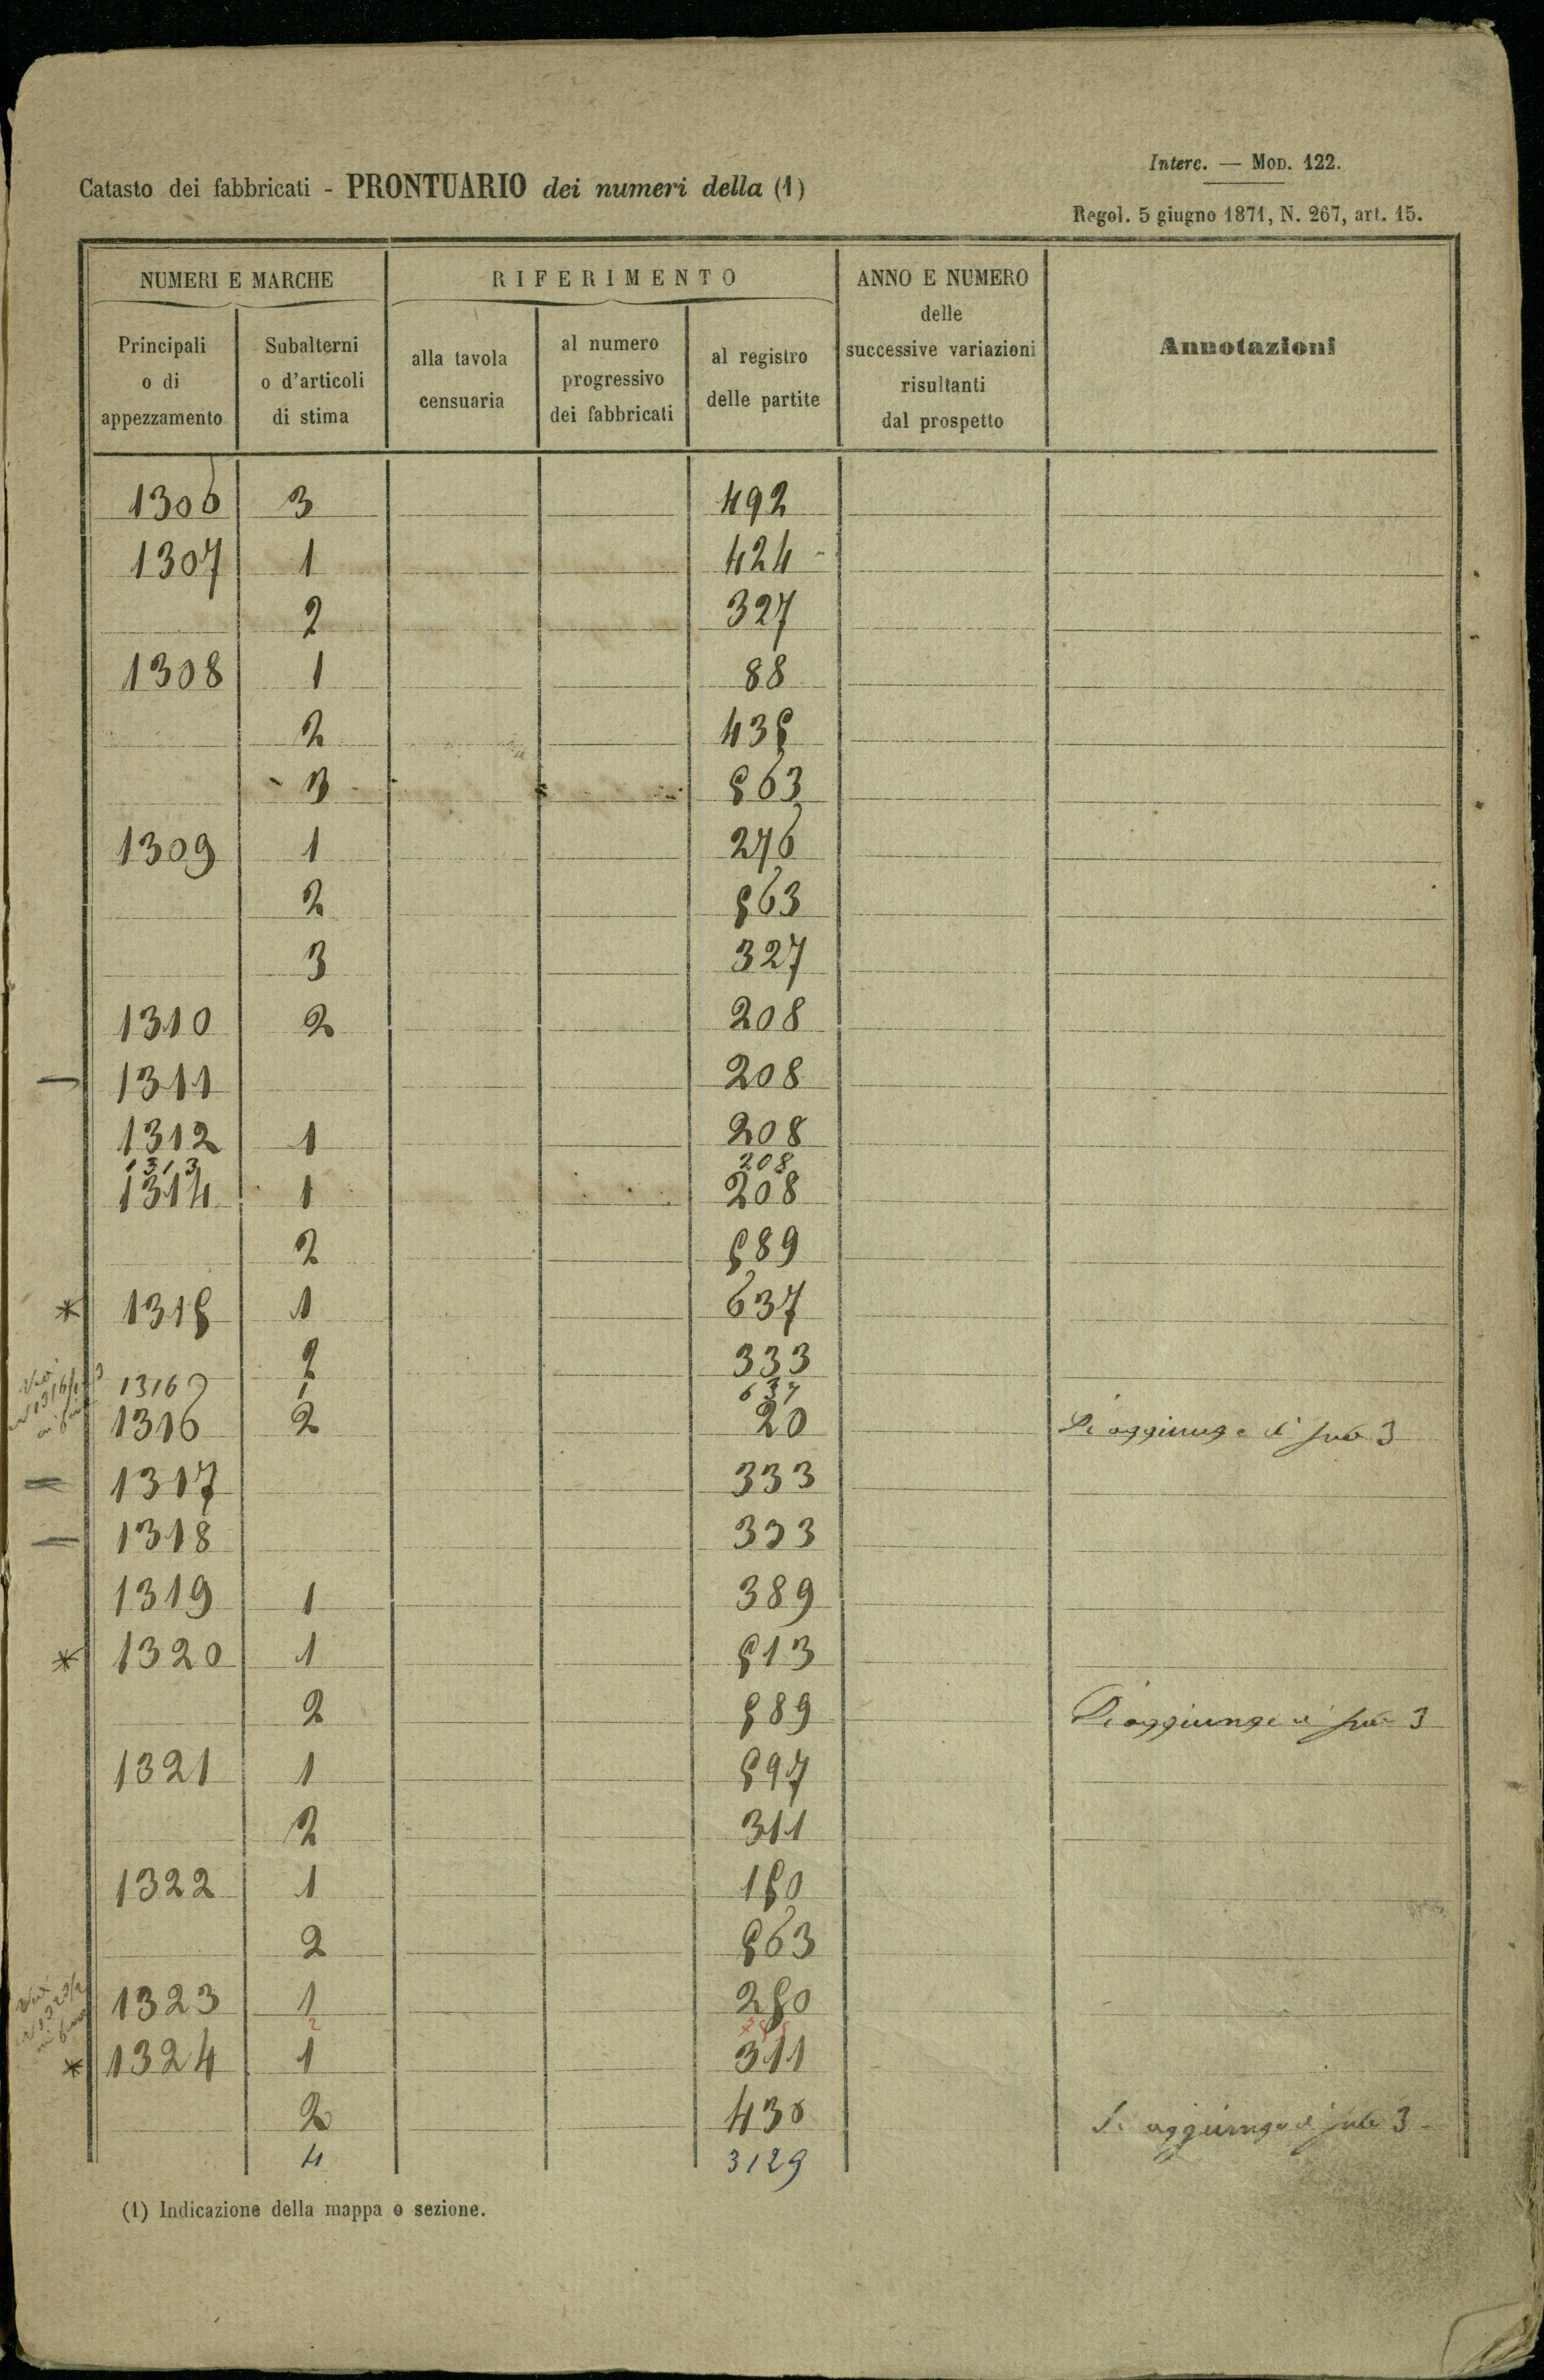 Interc. — Mod. 122.
Catasto dei fabbricati - PRONTUARIO dei numeri della (1)
Regol. 5 giugno 1871, N. 267, art. 15.
NUMERI E MARCHE
RIFERIMENTO
ANNO E NUMERO
delle
successive variazioni
risultanti
dal prospetto
Annotazioni
Principali
o di
appezzamento
Subalterni
o d'articoli
di stima
alla tavola
censuaria
al numero
progressivo
dei fabbricati
al registro
delle partite
1306 3 492
1307 1 424
2 327
1308 1 88
2 435
3 563
1309 1 276
2 563
3 327
1310 2 208
1311 208
1312 1 208
1313 208
1314 1 208
2 589
* 1315 1 637
2 333
1316 1 637
1316 2 20 Si aggiunge il sub 3
1317 333
1318 333
1319 1 389
* 1320 1 513
2 589 Si aggiunge il sub 3
1321 1 597
2 311
1322 1 150
2 563
1323 1 250
2
* 1324 1 311
2 438 Si aggiunge il sub 3
4 3129
(1) Indicazione della mappa o sezione.